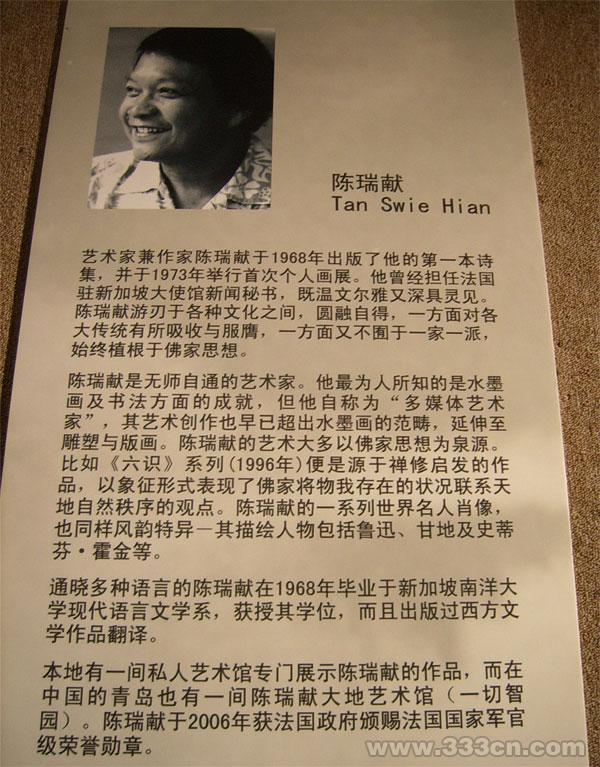 陈瑞献
Tan Swie Hian
艺术家兼作家陈瑞献于1968年出版了他的第一本诗
集，并于1973年举行首次个人画展。他曾经担任法国
驻新加坡大使馆新闻秘书，既温文尔雅又深具灵见。
陈瑞献游刃于各种文化之间，圆融自得，一方面对各
大传统有所吸收与服膺，一方面又不囿于一家一派，
始终植根于佛家思想。
陈瑞献是无师自通的艺术家。他最为人所知的是水墨
画及书法方面的成就，但他自称为“多媒体艺术
家”，其艺术创作也早已超出水墨画的范畴，延伸至
雕塑与版画。陈瑞献的艺术大多以佛家思想为泉源。
比如《六识》系列(1996年)便是源于禅修启发的作
品，以象征形式表现了佛家将物我存在的状况联系天
地自然秩序的观点。陈瑞献的一系列世界名人肖像，
也同样风韵特异－其描绘人物包括鲁迅、甘地及史蒂
芬·霍金等。
通晓多种语言的陈瑞献在1968年毕业于新加坡南洋大
学现代语言文学系，获授其学位，而且出版过西方文
学作品翻译。
本地有一间私人艺术馆专门展示陈瑞献的作品，而在
中国的青岛也有一间陈瑞献大地艺术馆（一切智
园）。陈瑞献于2006年获法国政府颁赐法国国家军官
级荣誉勋章。
www.333cn.com